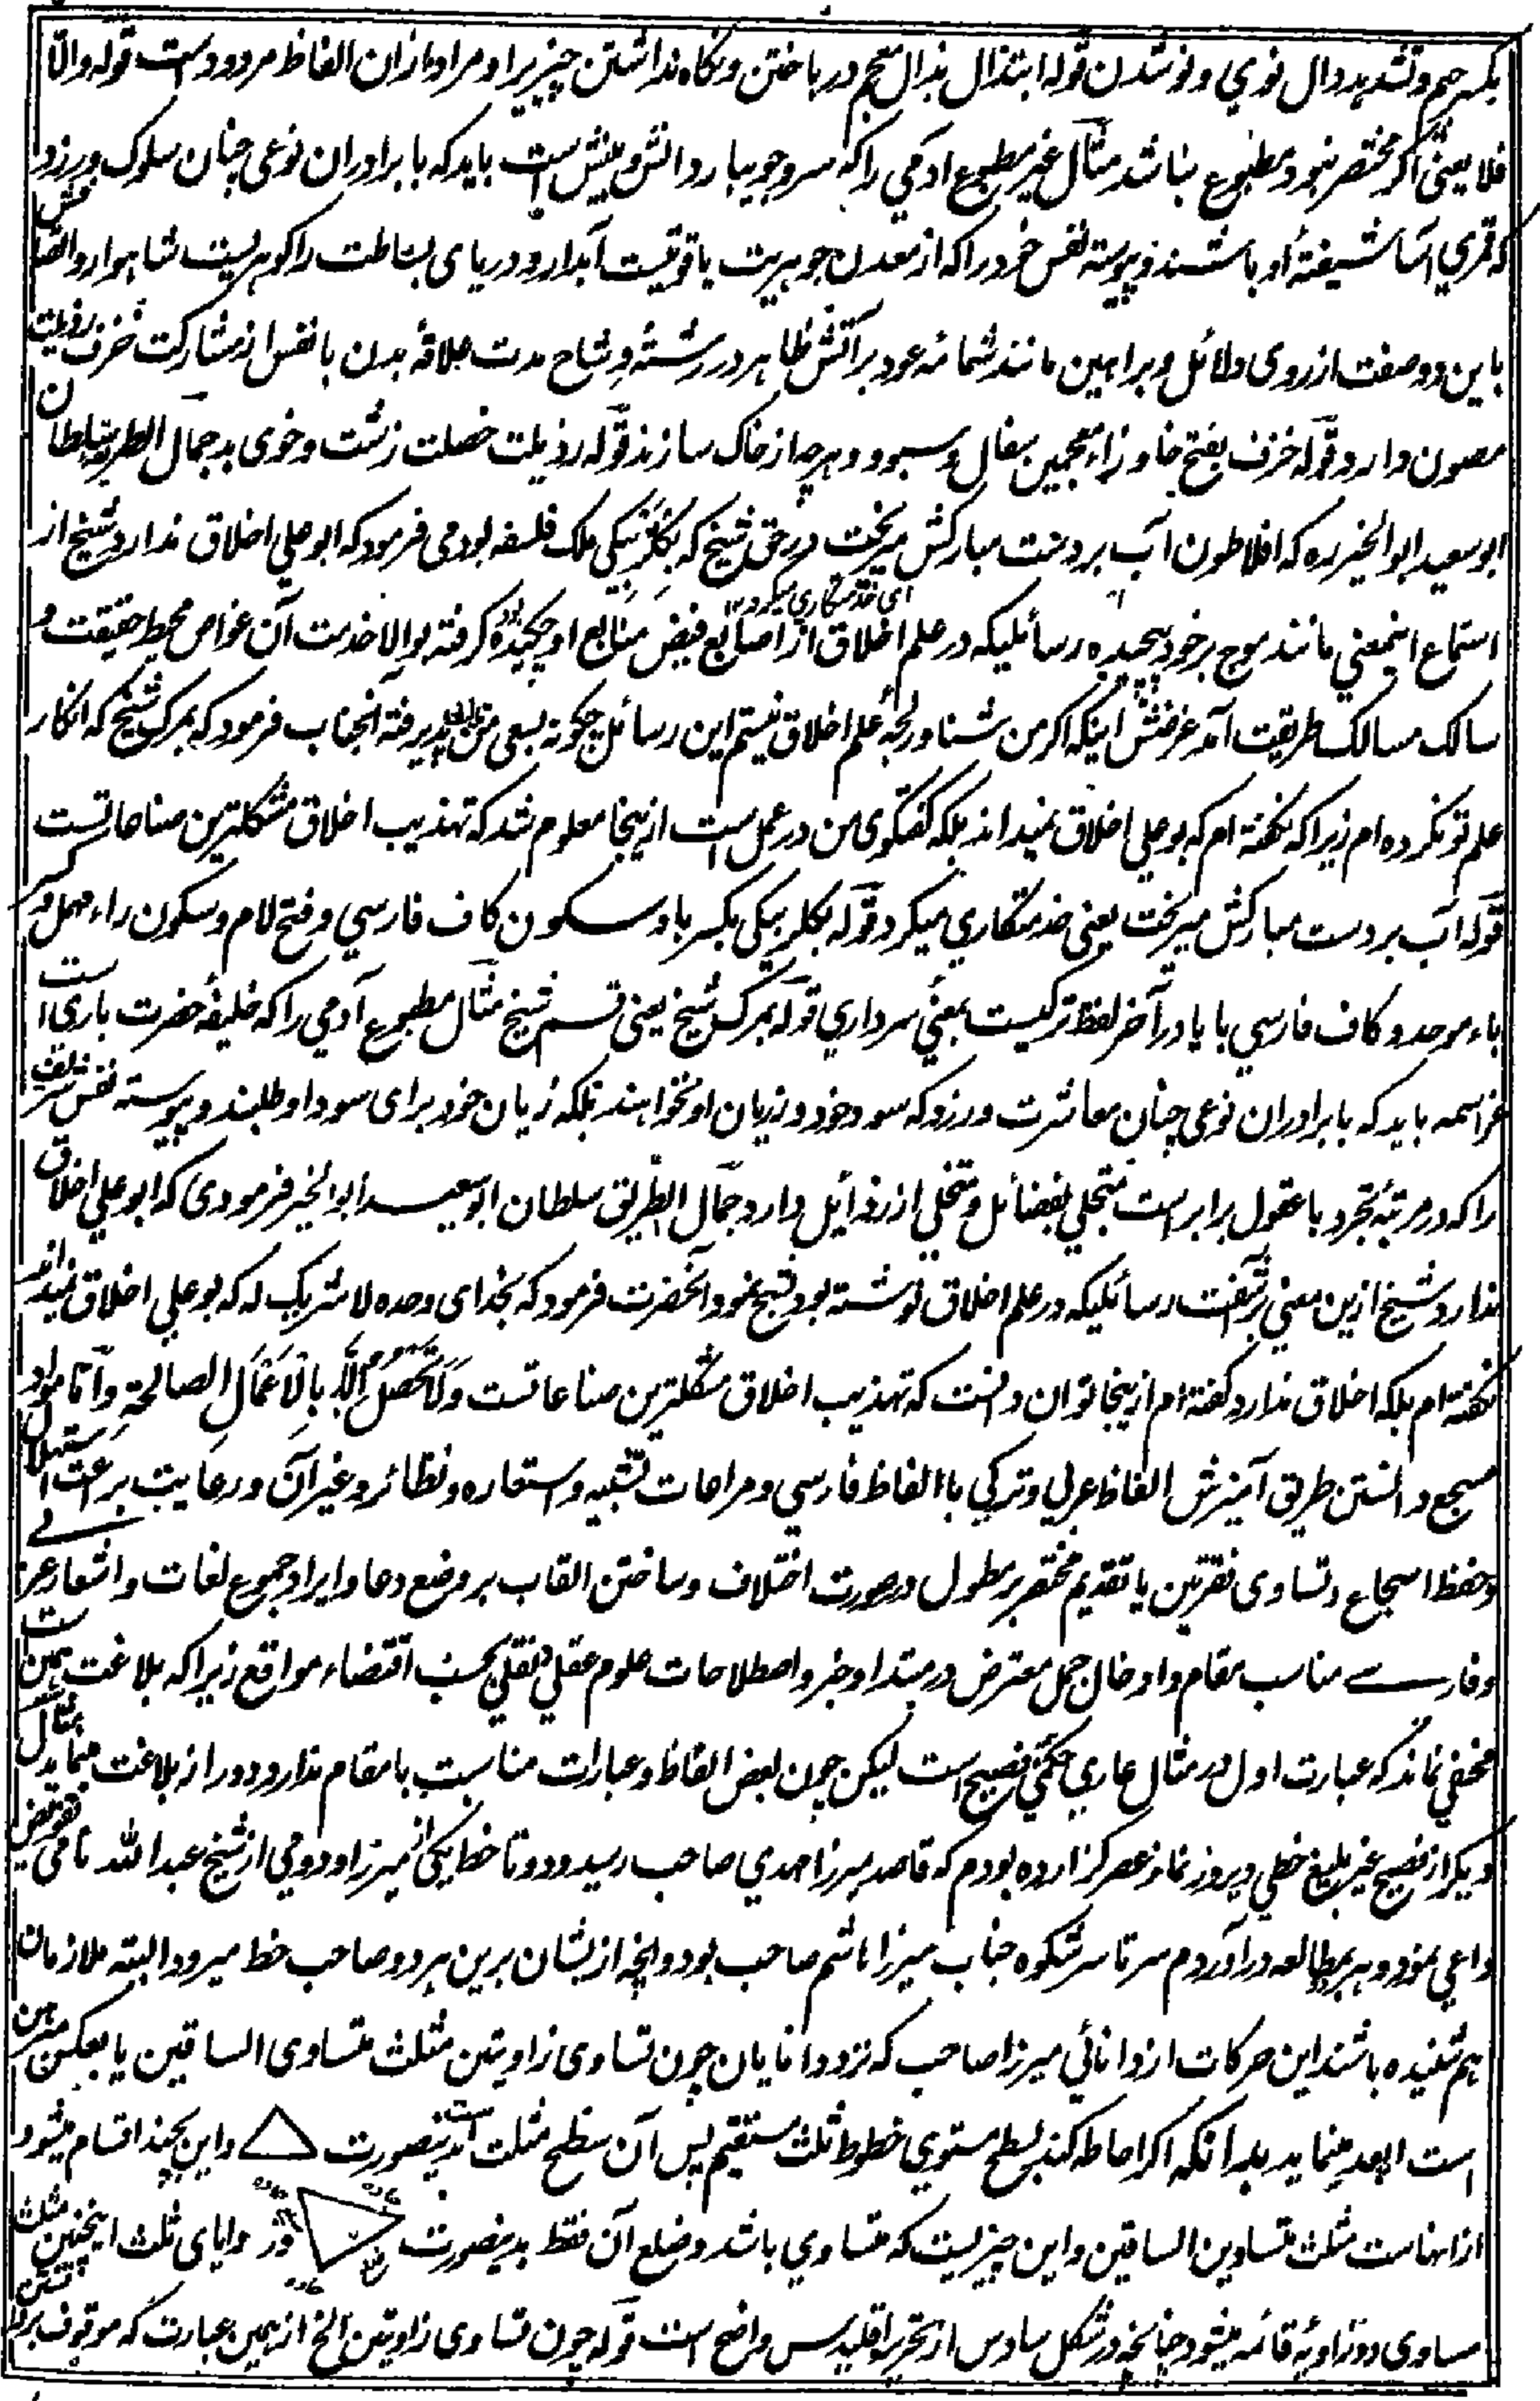 بکسر جیم و تشدید دال نوی و نو شدن قوله ابتذال بذال معجم در باختن و نگاه نداشتن چیزیرا و مراد ازان الفاظ مردود است قوله والّا
فلا یعنی اگر مختصر نبود مطبوع نباشد مثال غیر مطبوع آدمی را که سرو جویبار دانش و بینش است باید که با برادران نوعی چنان سلوک ورزد
که قمری آسا شیفتهٔ او باشند و پیوسته نفس خود را که از معدن جوهریت یاقوتیست آبدار و دریای بساطت را گوهریست شاهوار و اتصافش
باین دو صفت از روی دلائل و براهین مانند شمامهٔ عود بر آتش ظاهر در رشتهٔ وشاح مدت علاقهٔ بدن با نفس از مشارکت خزف رذیلت
مصون دارد قوله خزف بفتح خا و زاء معجمین سفال و سبو و هر چه از خاک سازند قوله رذیلت خصلت زشت و خوی بد جمال الطریق سلطان
ابو سعید ابو الخیر ره که افلاطون آب بر دست مبارکش میریخت در حق شیخ که بکلربیکی ملک فلسفه بود می فرمود که ابو علی اخلاق ندارد شیخ از
ای خدمتگاری میکرد ۱۲
استماع اینمعنی مانند موج بر خود پیچیده رسائلیکه در علم اخلاق از اصابع فیض منابع او چکیده بود گرفته بوالا خدمت آن غواص محیط حقیقت و
سالک مسالک طریقت آمد غرضش اینکه اگر من شناور لجهٔ علم اخلاق نیستم این رسائل چگونه بسعی من پذیرفته آنجناب فرمود که بمرک شیخ که انکار
علم تو نکرده ام زیرا که نگفته ام که بو علی اخلاق نمیداند بلکه گفتگوی من در عمل است ازینجا معلوم شد که تهذیب اخلاق مشکلترین صناعاتست
قوله آب بر دست مبارکش میریخت یعنی خدمتگاری میکرد قوله بکلربیکی بکسر با و سکون کاف فارسی و فتح لام و سکون راء مهمل و کسر
باء موحد و کاف فارسی با یا در آخر لفظ ترکیست بمعنی سرداری قوله بمرک شیخ یعنی قسم شیخ مثال مطبوع آدمی را که خلیفهٔ حضرت باری است
عز اسمه باید که با برادران نوعی چنان معاشرت ورزد که سود خود و زیان او نخواهند بلکه زیان خود برای سود او طلبند و پیوسته نفس شریف
را که در مرتبهٔ تجرد با عقول برابر است متجلی بفضائل و متخلی از رذائل دارد جمال الطریق سلطان ابو سعید ابو الخیر فرمودی که ابو علی اخلاق
ندارد شیخ ازین معنی بر آشفت رسائلیکه در علم اخلاق نوشته بود شیخ نمود آنحضرت فرمود که بخدای وحده لا شریک له که بو علی اخلاق نمیداند
نگفته ام بلکه اخلاق ندارد گفته ام ازینجا توان دانست که تهذیب اخلاق مشکلترین صناعاتست وَلا تَحصُلُ اِلّا بِالاَعمَالِ الصالحةِ و اما مواد
مسجع دانستن طریق آمیزش الفاظ عربی و ترکی با الفاظ فارسی و مراعات تشبیه و استعاره و نظائر و غیر آن و رعایت براعت استهلال
و حفظ اسجاع و تساوی فقرتین یا تقدیم مختصر بر مطول در صورت اختلاف و ساختن القاب بر وضع دعا و ایراد جموع لغات و اشعار عربی
و فارسی مناسب مقام و ادخال جمل معترض در مبتدا و خبر و اصطلاحات علوم عقلی و نقلی بحسب اقتضاء مواقع زیرا که بلاغت همین است
مخفی نماند که عبارت اول در مثال عاری حکمی فصیح است لیکن چون بعض الفاظ و عبارات مناسبت با مقام ندارد دور از بلاغت مینماید مثال
دیگر از فصیح غیر بلیغ خطی دیروز نماز عصر گزارده بودم که قاصد میرزا مهدی صاحب رسید و دو تا خط یکی از میرزا و دومی از شیخ عبد الله نامی تفویض
داعی نمود و هر بمطالعه در آوردم سرتاسر شکوه جناب میرزا هاشم صاحب بود و آنچه ازیشان برین هر دو صاحب خط میرود البته ملازمان
هم شنیده باشند این حرکات از دانائی میرزا صاحب که نزد دانایان چون تساوی زاویتین مثلث متساوی الساقین یا بعکس مبرهن
است ابعد مینماید بدانکه اگر احاطه کند بسطح مستوی خطوط ثلث مستقیم پس آن سطح مثلث است بدینصورت و این بچند اقسام میشود
از انهاست مثلث متساوین الساقین و این چیزیست که متساوی باشد دو ضلع آن فقط بدینصورت و زوایای ثلث اینچنین مثلث
مساوی دو زاویهٔ قائمه میشود چنانچه در شکل سادس از تحریر اقلیدس واضح است قوله چون تساوی زاویتین الخ از همین عبارت که موقوف بر دانستن